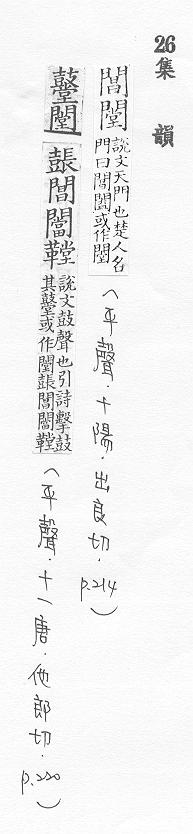 26集 韻
閶闛
說文天門也楚人名
門曰閶闔或作闛
(平聲．十陽．出良切．p.214)
鼞闛閶闣鞺
說文鼓聲也引詩擊鼓
其鼞或作闛閶闣鞺
(平聲．十一唐．他郎切．p.220)